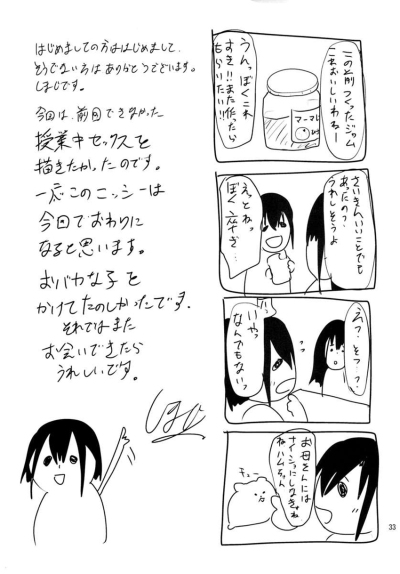 この前つくったジャム
これおいしいわねー
うんっぼくこれ
すき!!また作ったら
もらいたい!!
マーマレ
さいきんいいことでも
あったの??
うれしそうよ
えっとねっ
ぼく卒ぎ…
えっ?そっ??
いやっ
なんでもないっ
お母さんには
にしなきゃね
ねハムちゃん
チュー
はじめましての方ははじめまして、
そうでない方はありがとうございます。
しまじです。
今回は、前回できなかった
授業中セックスを
描きたかったのです。
一応このニッシーは
今回でおわりに
なると思います。
おバカな子を
かけてたのしかったです。
それではまた
お会いできたら
うれしいです。
33